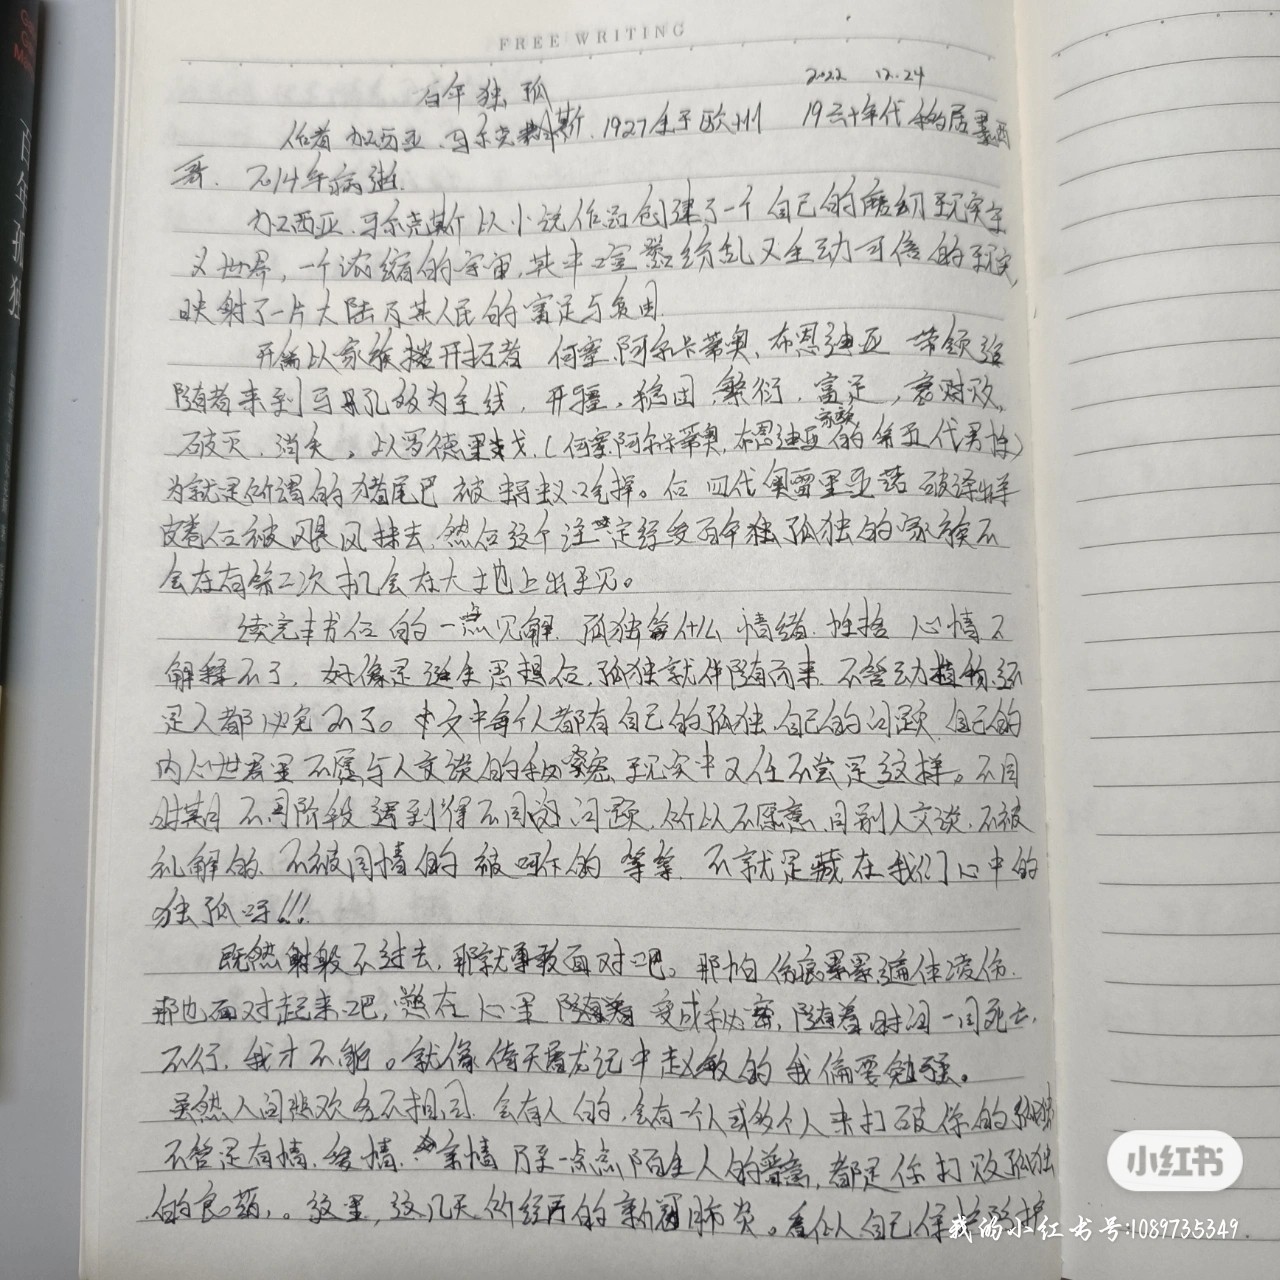 FREE WRITING
百年独孤 2022 12.24
作者 加西亚.马尔克斯.1927生于欧州 19六十年代移居墨西
哥. 2014年病逝.
加西亚.马尔克斯以小说作品创建了一个自己的魔幻现实主
义世界,一个浓缩的宇宙,其中纷乱又生动可信的现实,
映射了一片大陆及其人民的富足与贫困.
开篇以家族开拓者 何塞.阿尔卡蒂奥.布恩迪亚 带领追
随者来到马孔多为主线,开疆.稳固.繁衍.富足,衰财败.
破灭.消失。以罗德里戈.(何塞.阿尔卡蒂奥.布恩迪亚家族的第五代男性)
为就是所谓的猪尾巴被蚂蚁吃掉。后四代奥雷里亚诺破译羊
皮卷后被飓风抹去,然后这个注定经受百年独孤独的家族不
会在有第二次机会在大地上出现。
读完本书后的一点见解.孤独算什么 情绪.性格 心情又
解释不了,好像是诞生思想后,孤独就伴随而来.不管动植物还
是人都以免不了。本文中每个人都有自己的孤独.自己的问题.自己的
内心世界里不愿与人交谈的秘密.现实中又何不尝是这样。不同
时期 不同阶段遇到得不同的问题.所以不愿意同别人交谈.不被
礼解的.不被同情的 被呵斥的 等等.不就是藏在我们心中的
独孤呀!!!
既然躲不过去,那就勇敢面对吧。那怕伤痕累累.遍体凌伤.
那也面对起来吧,憋在心里随着变成秘密,随着时间一同死去,
不行,我才不能。就像倚天屠龙记中赵敏的我偏要勉强。
虽然人间悲欢各不相同.会有人的,会有一个人或多个人来打破你的孤独
不管是友情.爱情.亲情乃至一点点陌生人的善意,都是你打败孤独
的良药,。这里,这几天所经历的新冠肺炎。看似人自己保护
小红书
我的小红书号:1089735349.